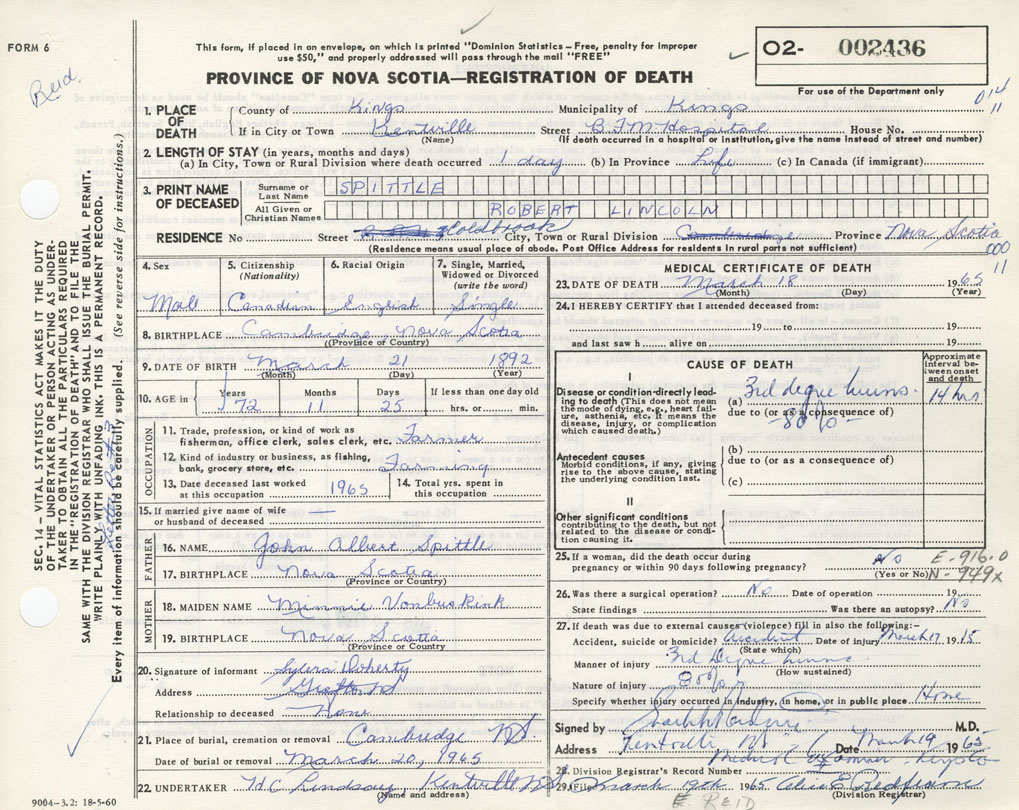 FORM 6
This form, if placed in an envelope, on which is printed "Dominion Statistics – Free, penalty for improper
use $50," and properly addressed will pass through the mail "FREE"
O2- 002436
PROVINCE OF NOVA SCOTIA—REGISTRATION OF DEATH
For use of the Department only
Reid.
014
11
1. PLACE OF DEATH County of Kings Municipality of Kings
If in City or Town Kentville Street B F M Hospital House No.
(Name) (If death occurred in a hospital or institution, give name instead of street and number)
2. LENGTH OF STAY (in years, months and days)
(a) In City, Town or Rural Division where death occurred 1 day (b) In Province Life (c) In Canada (if immigrant)
3. PRINT NAME OF DECEASED
Surname or Last Name SPITTLE
All Given or Christian Names ROBERT LINCOLN
RESIDENCE No Street Coldbrook City, Town or Rural Division Cambridge Province Nova Scotia
(Residence means usual place of abode. Post Office Address for residents in rural parts not sufficient)
000
11
4. Sex 5. Citizenship (Nationality) 6. Racial Origin 7. Single, Married, Widowed or Divorced (write the word)
Male Canadian English Single
8. BIRTHPLACE Cambridge Nova Scotia
(Province or Country)
9. DATE OF BIRTH March 21 1892
(Month) (Day) (Year)
10. AGE in Years Months Days If less than one day old
72 11 25 hrs. or min.
OCCUPATION
11. Trade, profession, or kind of work as fisherman, office clerk, sales clerk, etc. Farmer
12. Kind of industry or business, as fishing, bank, grocery store, etc. Farming
13. Date deceased last worked at this occupation 1965 14. Total yrs. spent in this occupation
15. If married give name of wife or husband of deceased
FATHER
16. NAME John Albert Spittle
17. BIRTHPLACE Nova Scotia
(Province or Country)
MOTHER
18. MAIDEN NAME Minnie Vanbuskirk
19. BIRTHPLACE Nova Scotia
(Province or Country)
20. Signature of informant Doherty
Address
Relationship to deceased None
21. Place of burial, cremation or removal Cambridge NS
Date of burial or removal March 20, 1965
22. UNDERTAKER H C Lindsay Kentville NS
(Name and address)
MEDICAL CERTIFICATE OF DEATH
23. DATE OF DEATH March 18 1965
(Month) (Day) (Year)
24. I HEREBY CERTIFY that I attended deceased from:
19 to 19
and last saw h alive on 19
CAUSE OF DEATH
Approximate interval between onset and death
I
Disease or condition directly leading to death (This does not mean the mode of dying, e.g., heart failure, asthenia, etc. It means the disease, injury, or complication which caused death.)
(a) 3rd degree burns 14 hrs
due to (or as a consequence of)
80%
Antecedent causes
Morbid conditions, if any, giving rise to the above cause, stating the underlying condition last.
(b)
due to (or as a consequence of)
(c)
II
Other significant conditions
contributing to the death, but not related to the disease or condition causing it.
25. If a woman, did the death occur during pregnancy or within 90 days following pregnancy? No
(Yes or No)
E-916.0
N-949x
26. Was there a surgical operation? No Date of operation 19
State findings Was there an autopsy? No
27. If death was due to external causes (violence) fill in also the following:–
Accident, suicide or homicide? Accident Date of injury March 17 19
(State which)
Manner of injury 3rd Degree burns
(How sustained)
Nature of injury 80%
Specify whether injury occurred in industry, in home, or in public place Home
Signed by M.D.
Address Kentville NS Date March 19 1965
Medical Examiner
28. Division Registrar's Record Number
29. Filed March 19th 1965
(Division Registrar)
E. REID
SEC. 14 – VITAL STATISTICS ACT MAKES IT THE DUTY
OF THE UNDERTAKER OR PERSON ACTING AS UNDER-
TAKER TO OBTAIN ALL THE PARTICULARS REQUIRED
IN THE "REGISTRATION OF DEATH" AND TO FILE THE
SAME WITH THE DIVISION REGISTRAR WHO SHALL ISSUE THE BURIAL PERMIT.
WRITE PLAINLY WITH UNFADING INK. THIS IS A PERMANENT RECORD.
Every item of information should be carefully supplied. (See reverse side for instructions.)
9004-3.2: 18-5-60